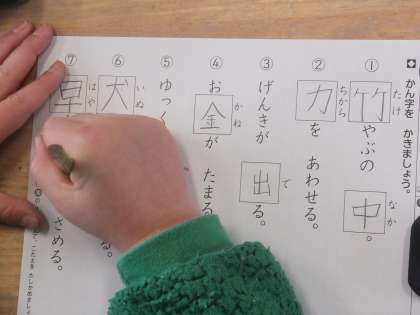 かん字を かきましょう。
① 竹やぶの 中。
たけ なか
② 力を あわせる。
ちから
③ げんきが 出る。
で
④ お金が たまる。
かね
⑤ ゆっく
⑥ 犬 る。
いぬ
⑦ 早 さめる。
はや
て、こたえを たしかめましょ